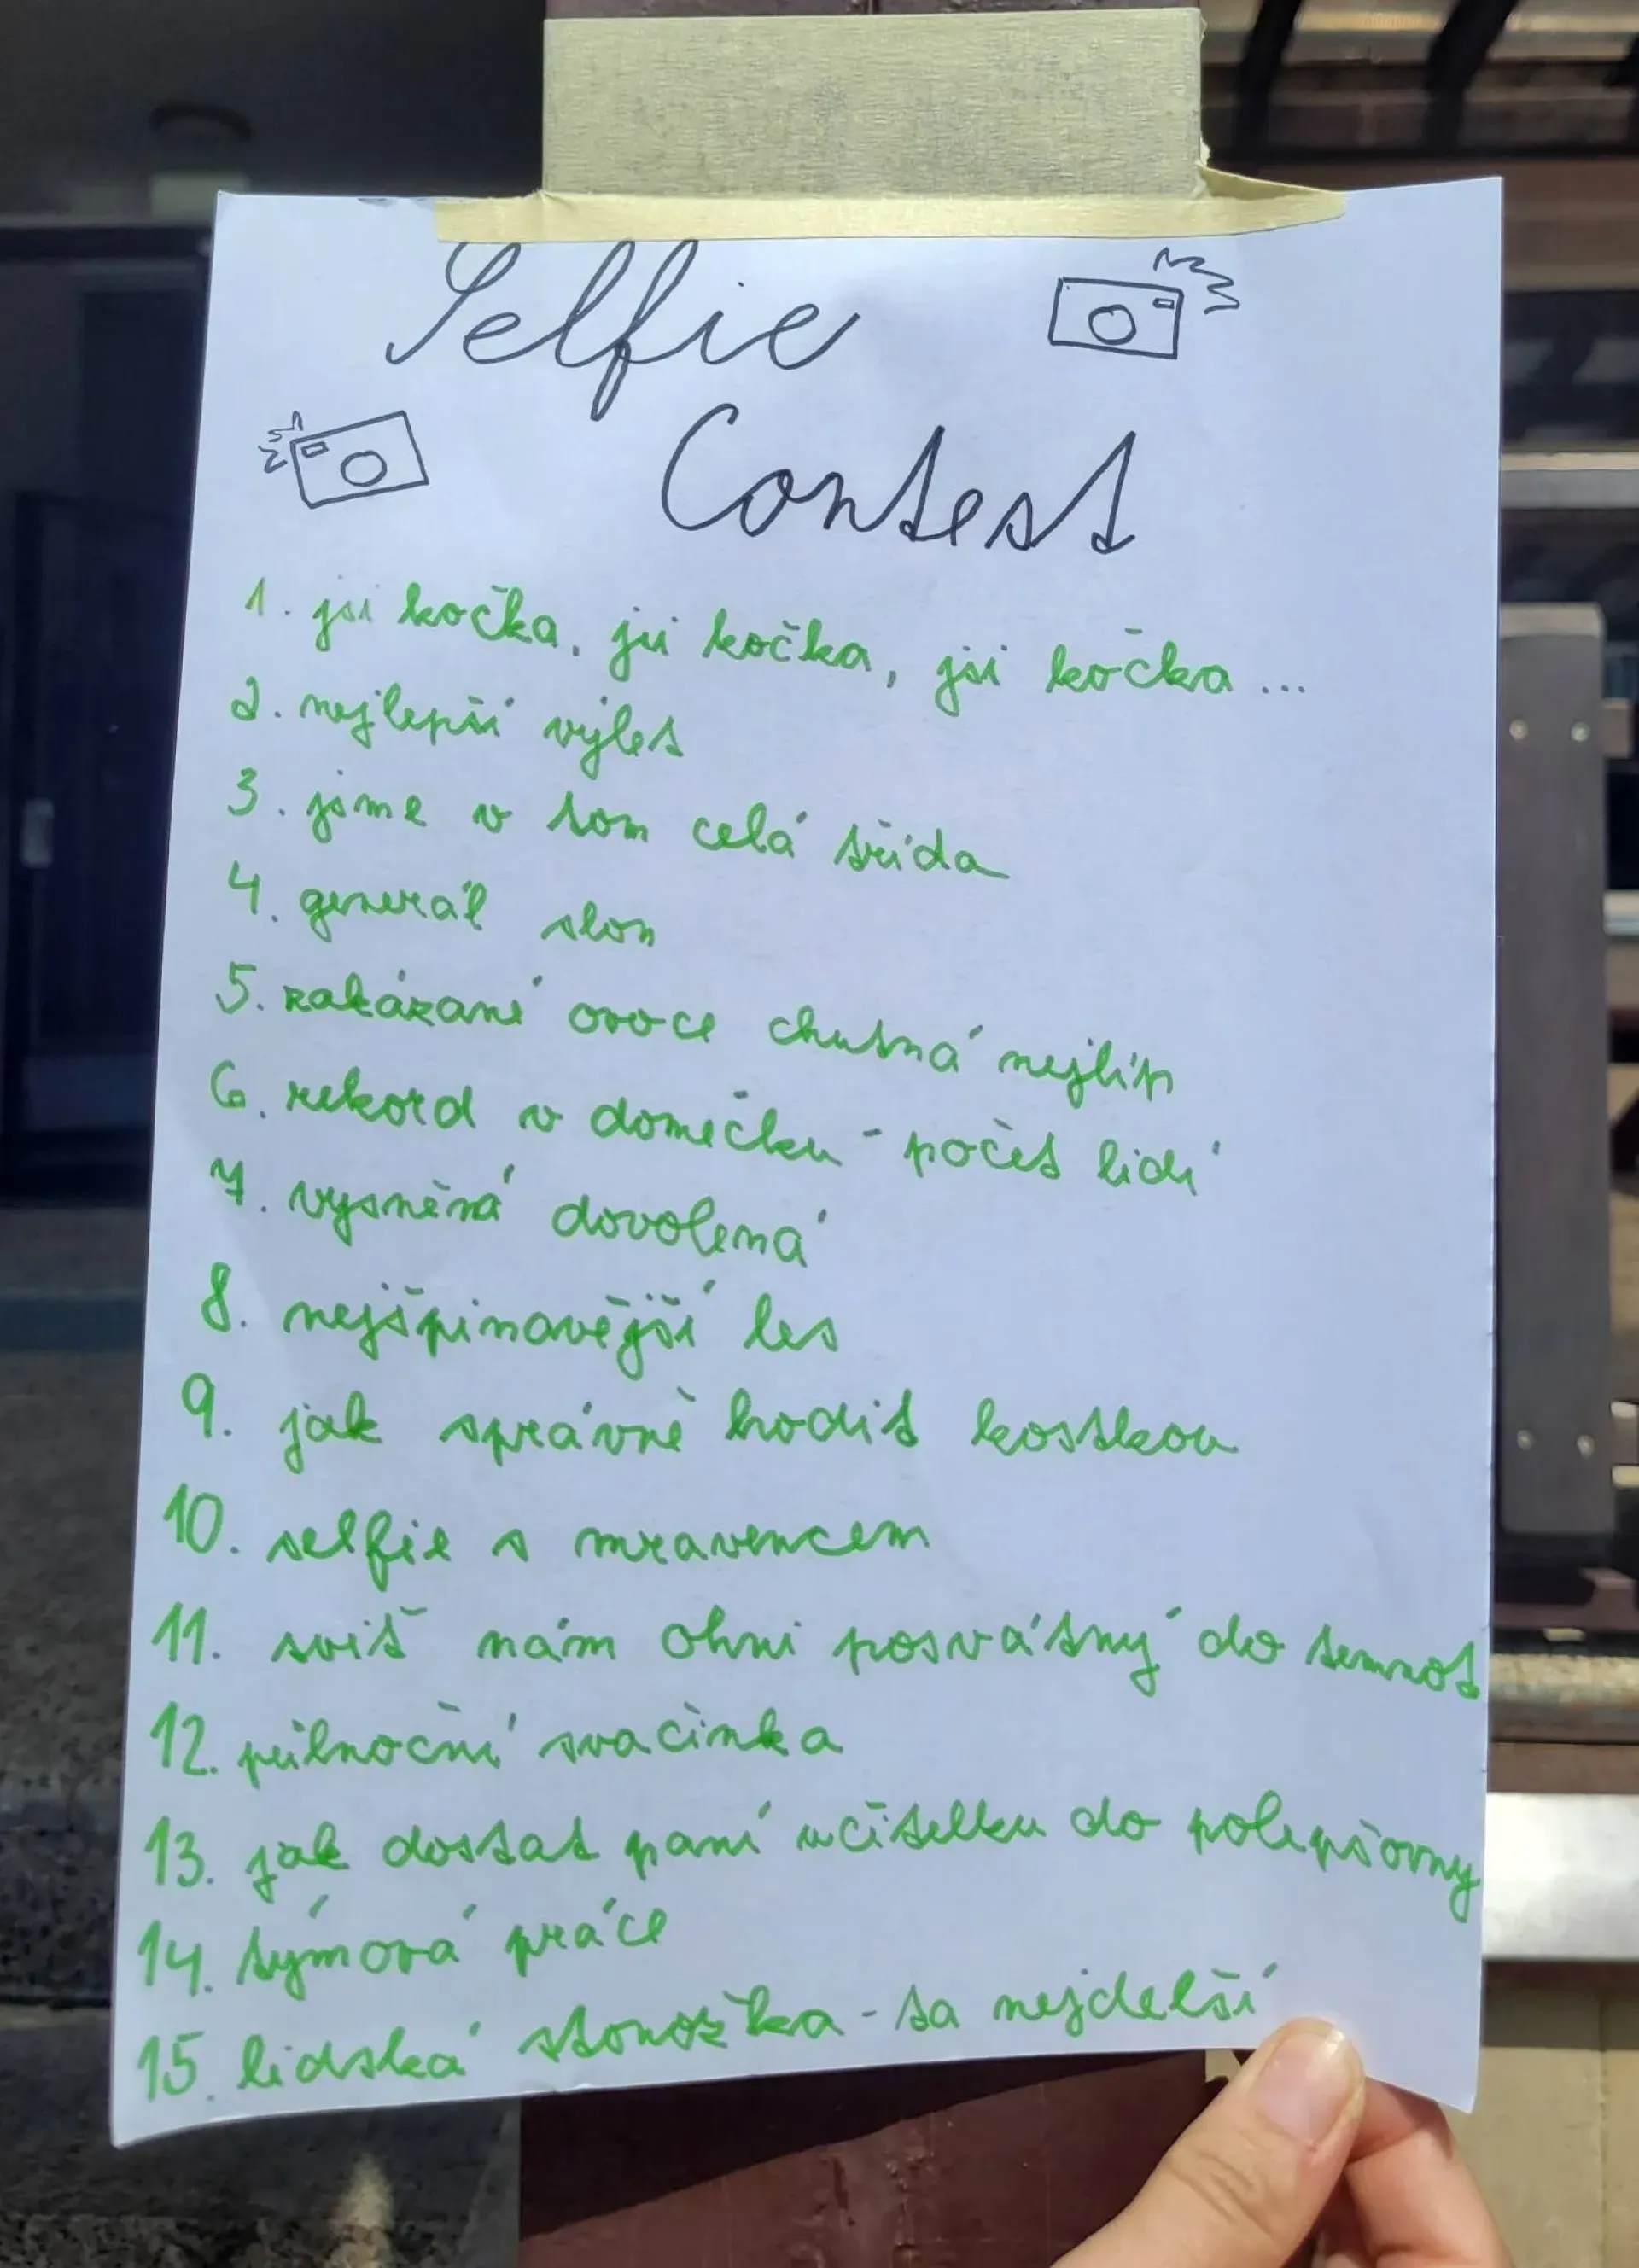 Selfie
Contest
1. jsi kočka, jsi kočka, jsi kočka...
2. nejlepší výlet
3. jsme v tom celá třída
4. generál slon
5. zakázané ovoce chutná nejlíp
6. rekord v domečku - počet lidí
7. vysněná dovolená
8. nejšpinavější les
9. jak správně hodit kostkou
10. selfie s mravencem
11. sviť nám ohni posvátný do temnot
12. půlnoční svačinka
13. jak dostat paní učitelku do polepšovny
14. týmová práce
15. lidská stonožka - ta nejdelší